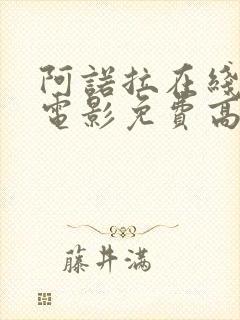 阿諾拉在綫
電影免費高
藤井满